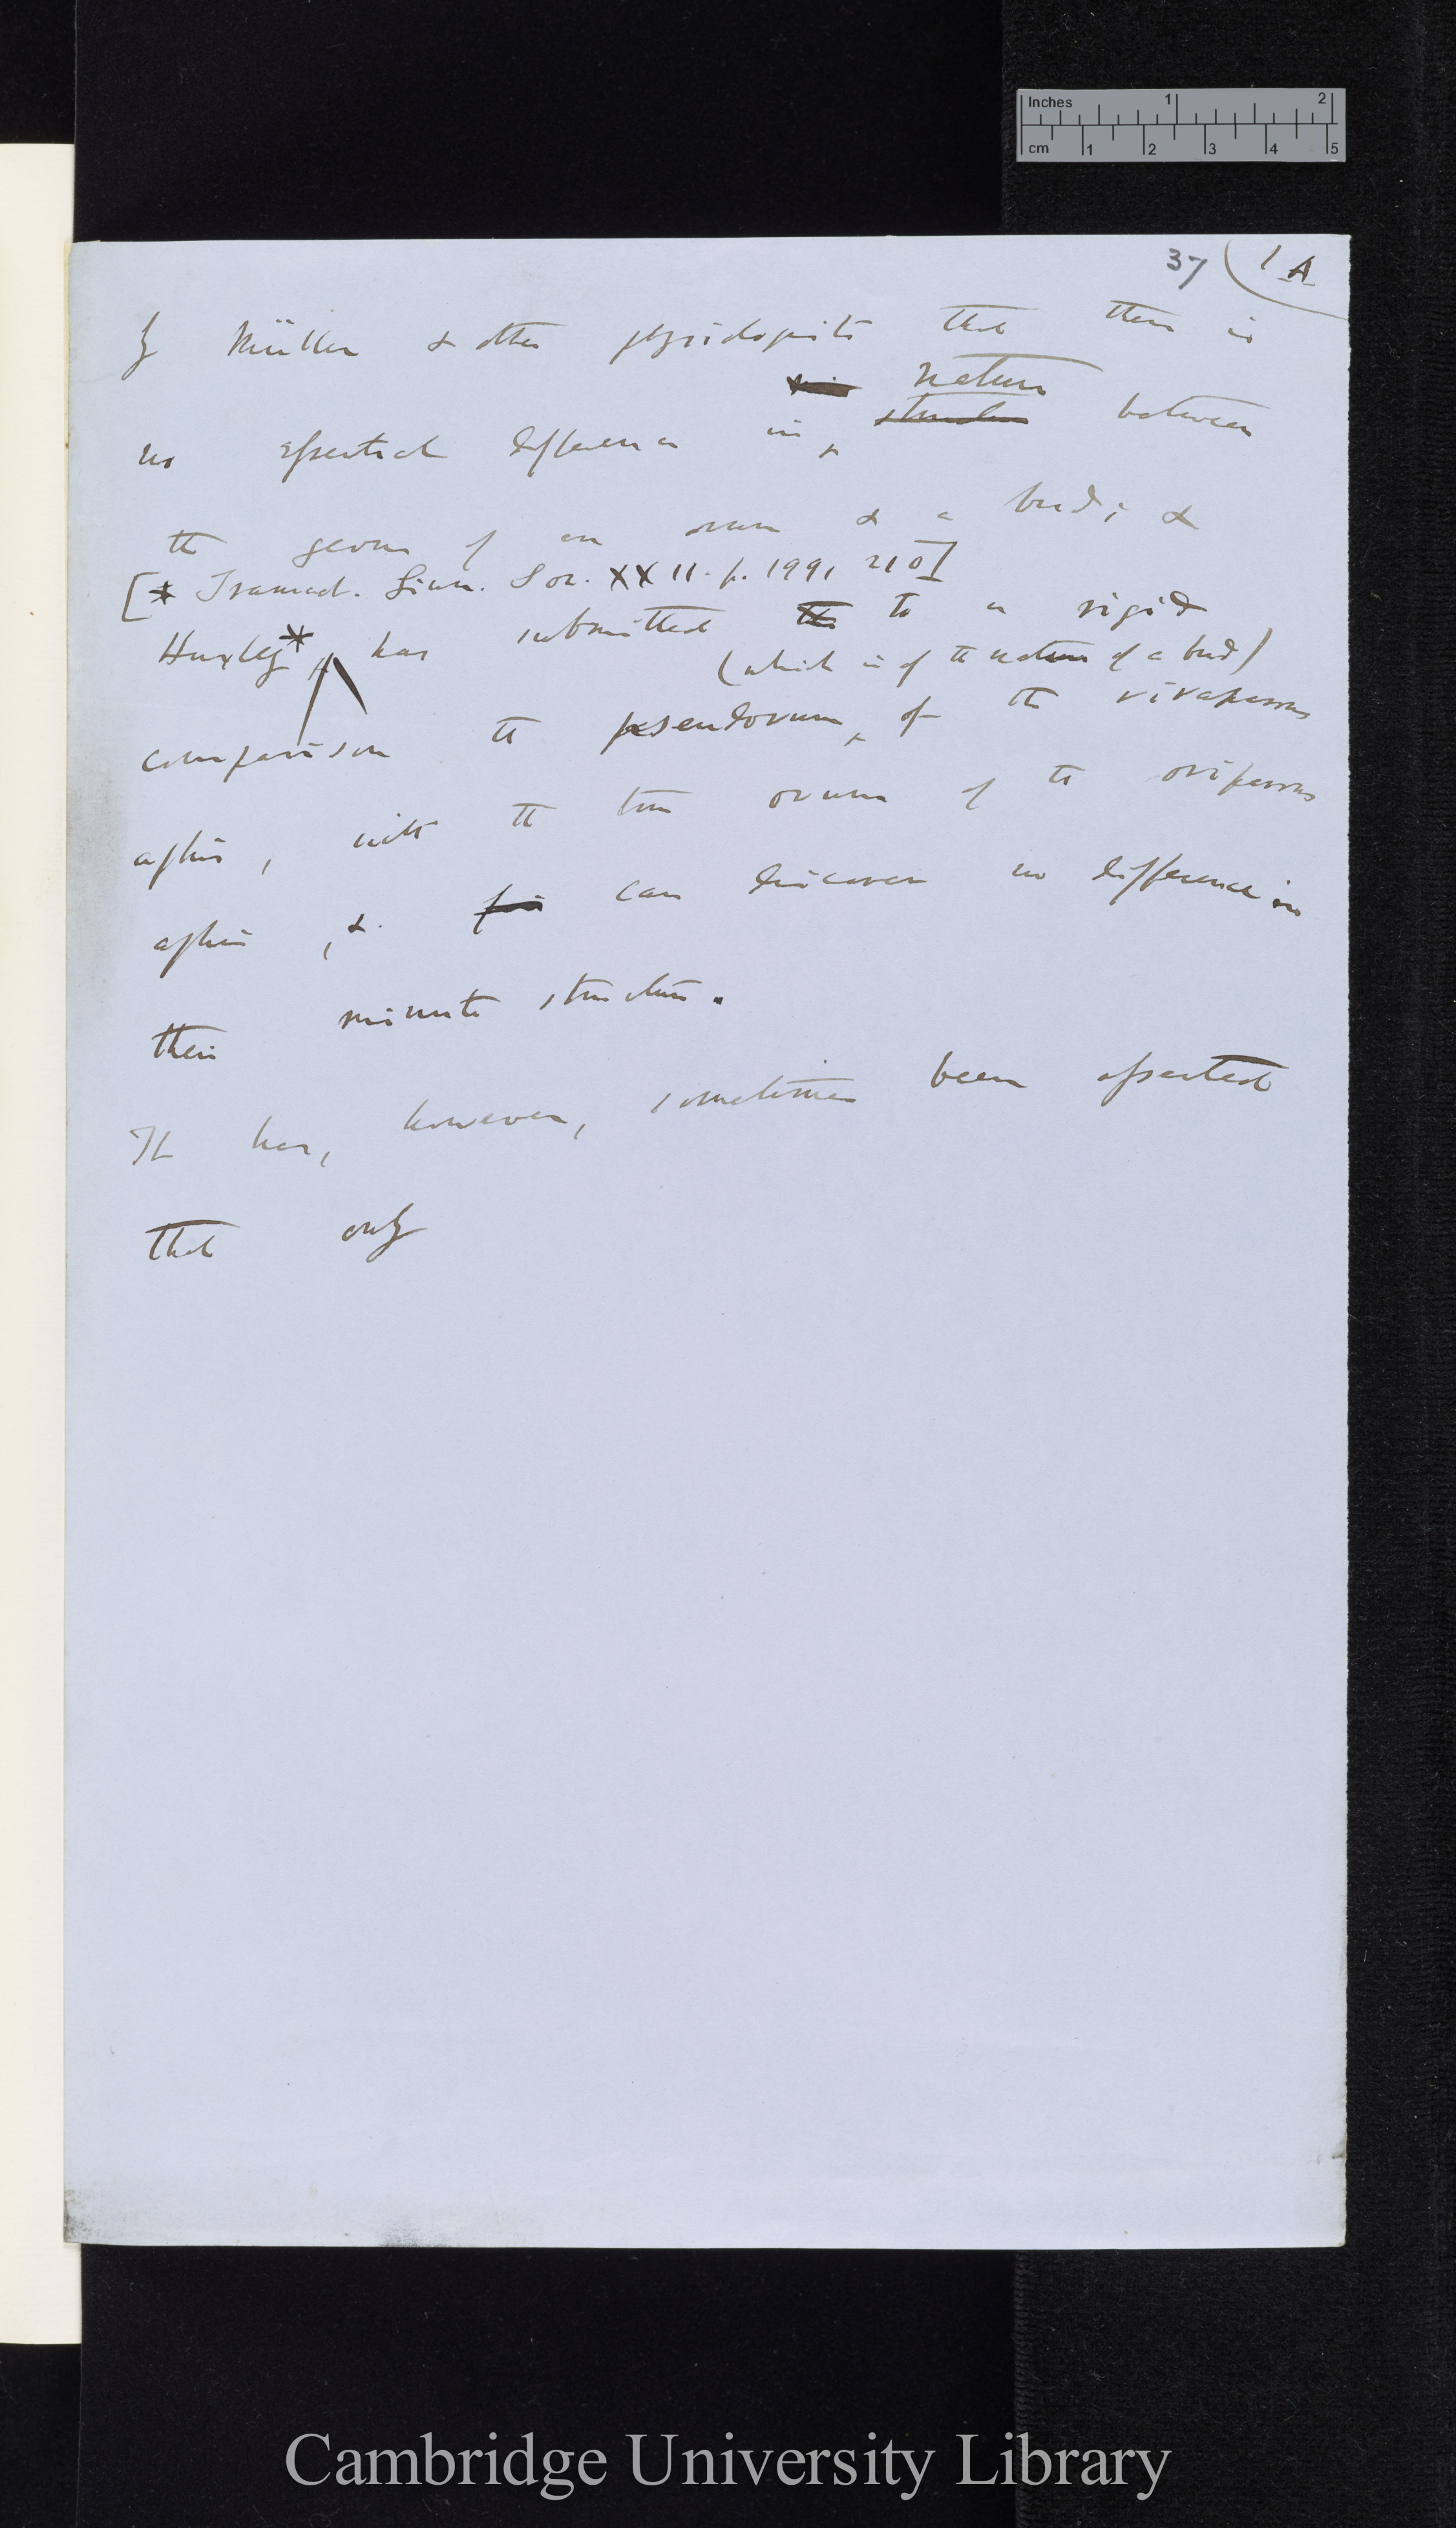 Inches 1 2
cm 1 2 3 4 5
37 1 A
by Müller & other physiologists that there is
nature
no essential difference in structure between
the germ of an ovum & a bud; &
[* Transact. Linn. Soc. XXII. p. 199, 210]
Huxley* has submitted the to a rigid
(which is of the nature of a bud)
comparison the pseudovum of the viviparous
aphis, with the true ovum of the oviparous
aphis, & can discover no difference in
their minute structure.
It has, however, sometimes been asserted
that only
Cambridge University Library